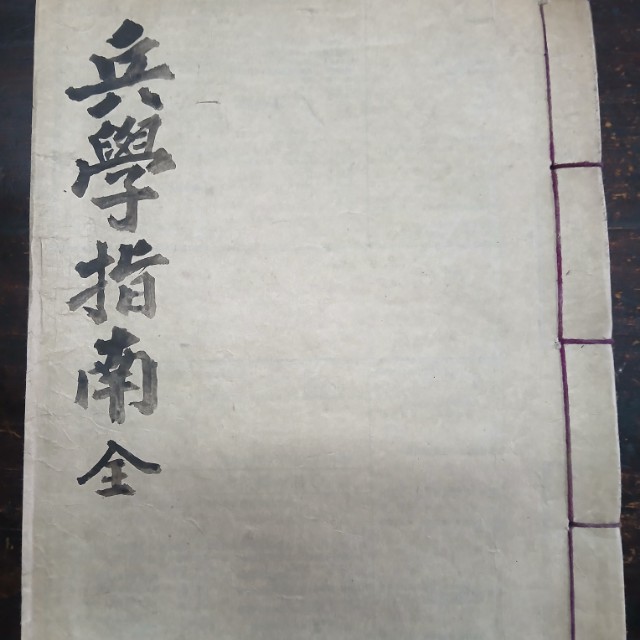 兵學指南全